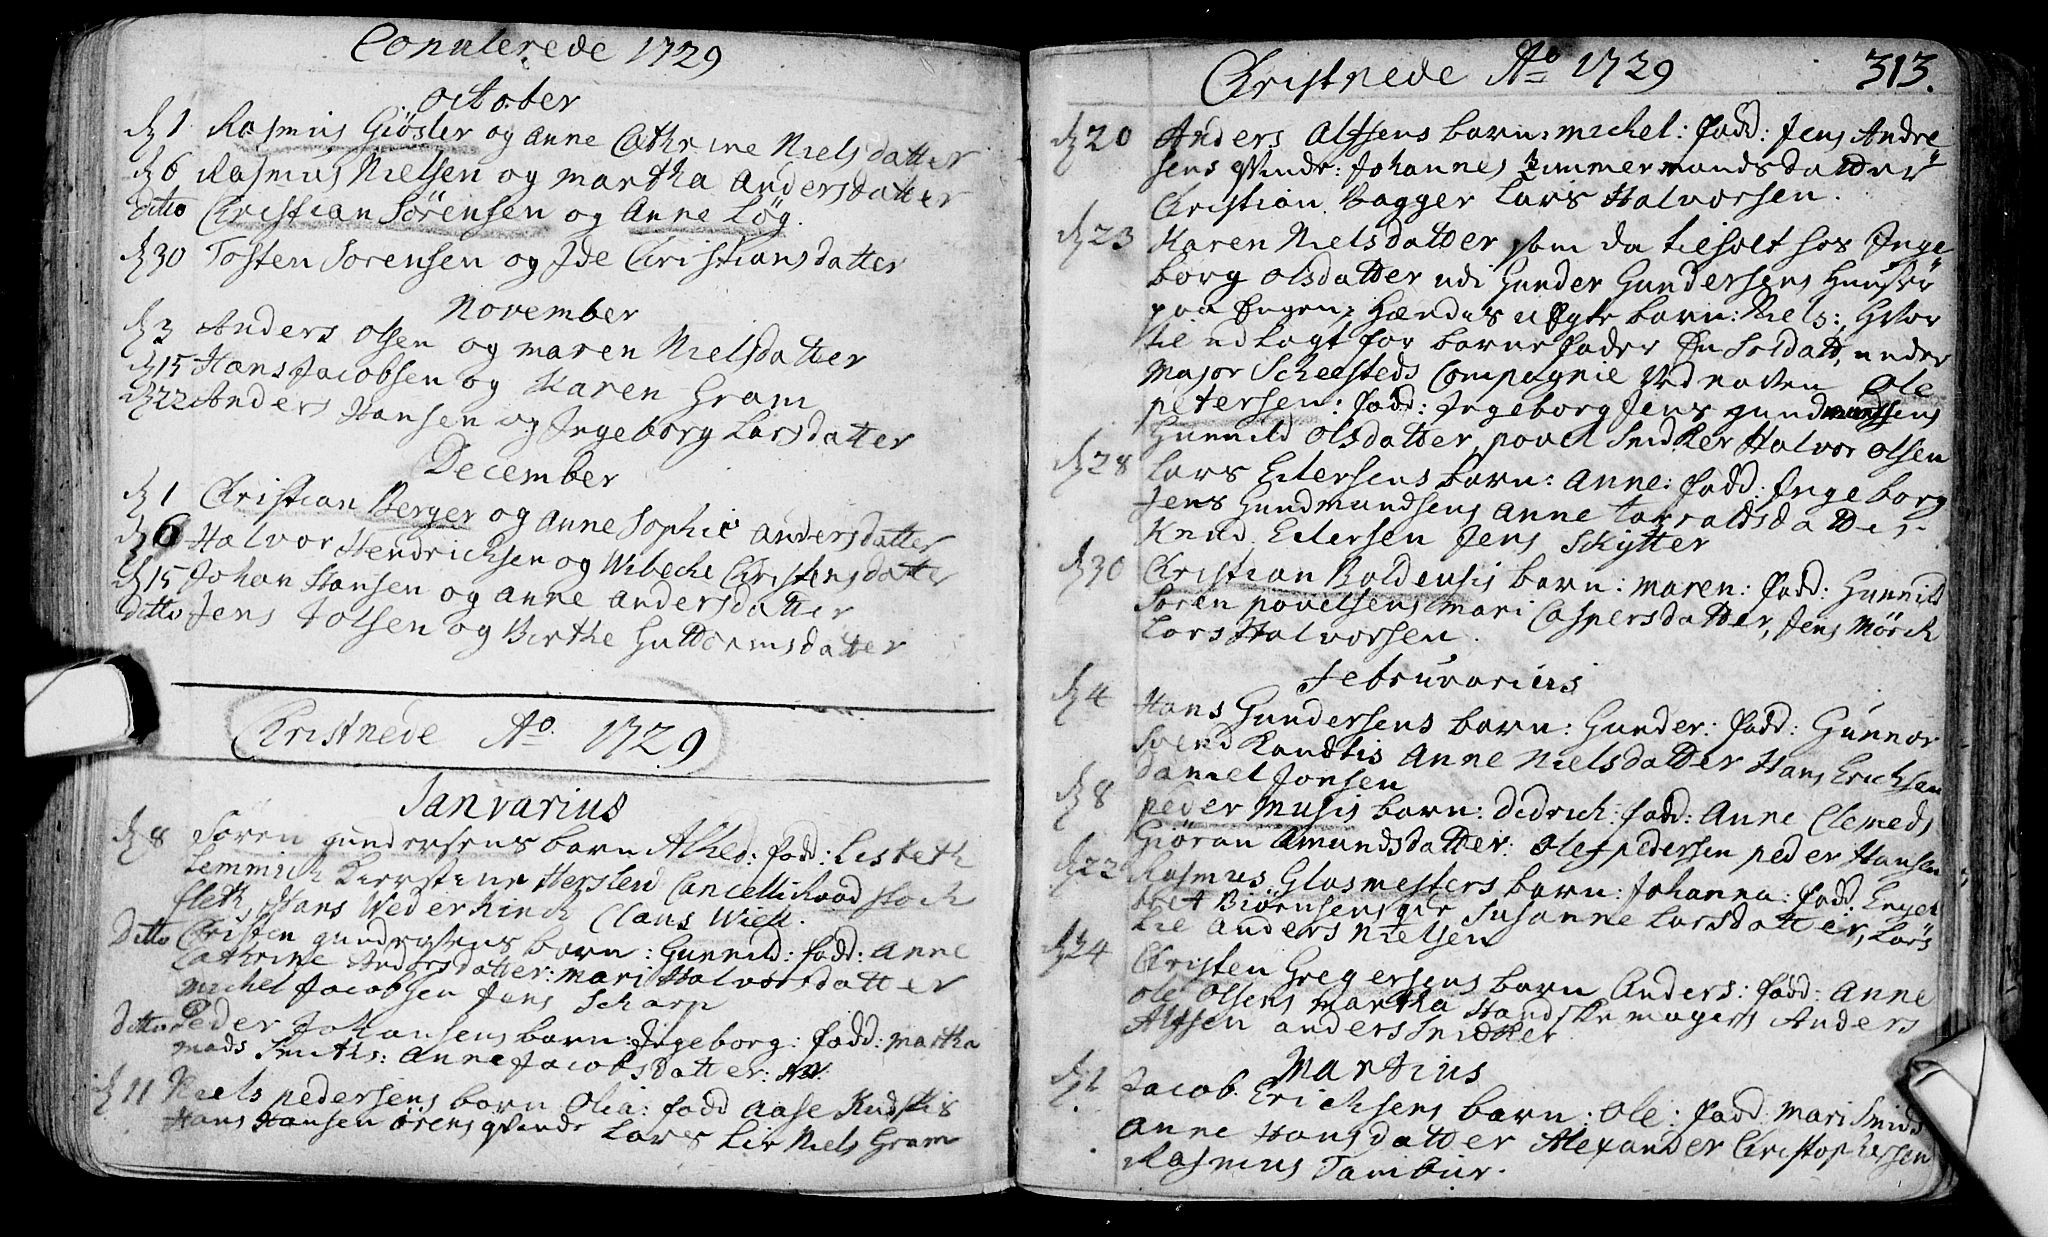 Copulerede 1729
October
d 1 Rasmus Giösler og Anne Cathrine Nielsdatter
d 6 Rasmus Nielsen og Martha Andersdatter
Ditto Christian Sörensen og Anne Løg.
d 30 Tosten Sorensen og Ide Christiansdatter
November
d 3 Anders Olsen og Maren Nielsdatter
d 15 Hans Jacobsen og Karen Gram
d 22 Anders Hansen og Ingeborg Larsdatter
December
d 1 Christian Berger og Anne Sophie Andersdatter
d 6 Halvor Hendrichsen og Wibeche Christensdatter
d 15 Johan Hansen og Anne Andersdatter
Ditto Jens Tolsen og Birthe Guttormsdatter
Christnede Ao. 1729
Ianvarius
d 8 Sören gundersens barn Alhed: fadd: Lisbeth
Lemmich Kierstine Herslew Cancelliraad Stock
fleth, Hans Wederkinch Claus Wiell.
Ditto Christen gundersens barn: Gunnild: fadd: Anne
Cathrine Andersdatter: Mari Halvorsdatter
Michel Jacobsen Jens Scharp
Ditto Peder Johansens barn: Ingeborg: fadd: Martha
Mads Smiths: Anne Jacobsdatter:
d 11 Niels pedersens barn Olia: fadd Aase
Hans Hansen örens qvinde Lars Lie Niels Gram
Christnede Ao 1729 313.
d 20 Anders Alfsens barn: Michel: fadd: Jens Andre-
sens qvinde: Johannes Zimmermands datter
Christian Bagger Lars Halvorsen.
d 23 Karen Nielsdatter som da tilholt hos Inge-
borg Olsdatter udi Gunder Gundersens Huuser
paa Engen: Hændes uægte barn: Niels: Hvor
til udlagt for barnefader En Soldatt, under
Major Scheelsteds Compagnie ved navn Ole
petersen: fadd: Ingeborg Jens gundmundsens
Gunnild Olsdatter, povel Snidker Halvor Olsen
d 28 Lars Eilersens barn: Anne: fadd: Ingeborg
Jens Gundmundsens Anne Tarvaldsdatter
Knud Eilersen Jens Skytter
d 30 Christian Boldensis barn: Maren: fadd: Gunnild
Sören povelsens Mari Caspersdatter, Jens Mörch
Lars Halvorsen.
Februvarius
d 4 Hans Gundersens barn: Gunder: fadd: Gunnor
Svend Randtis Anne Nielsdatter Hans Erichsen
Daniel Jonsen
d 8 peder Musis barn: Didrich: fadd: Anne Clemeds
Giöran Amundsdatter: Ole pedersen peder Hansen
d 22 Rasmus Glasmesters barn: Johanna: fadd. Engel-
bret Biörnsens Susanne Larsdatter, Lars
Lie Anders Nielsen
d 24 Christen Gregersens barn Anders: fadd: Anne
Ole Olsens Martha Handskemagers Anders
Alfsen Anders Snidker
Martius
d 1. Jacob Erichsens barn: Ole: fadd: Mari Smids
Anne Hansdatter Alexander Christophersen
Rasmus Tambur.